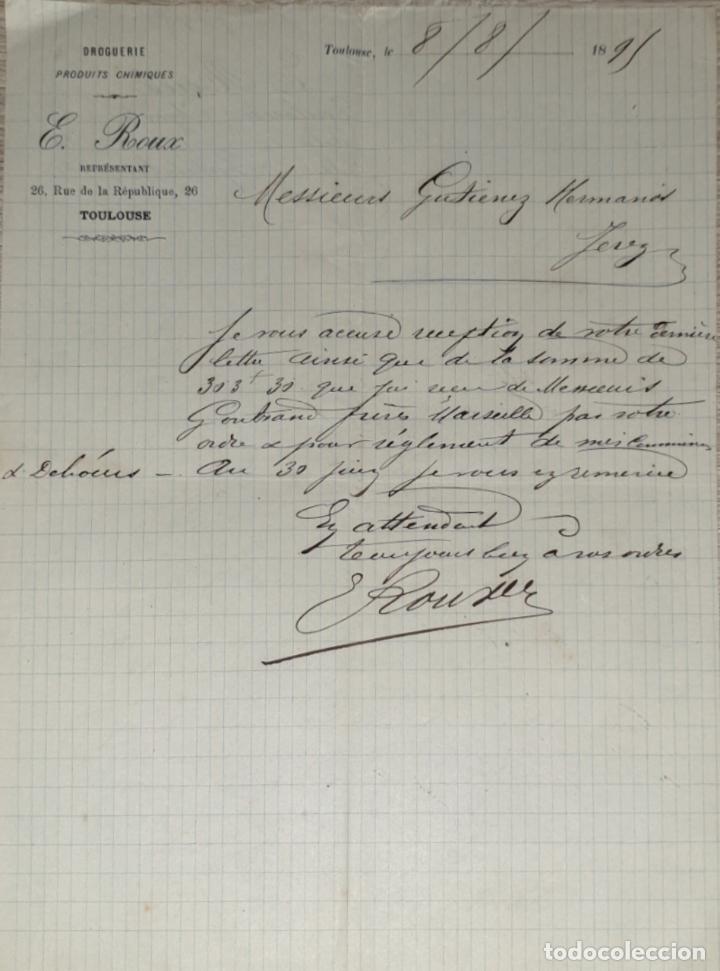 DROGUERIE
PRODUITS CHIMIQUES
E. Roux
REPRÉSENTANT
26, Rue de la République, 26
TOULOUSE
Toulouse, le 8/8/ 1895
Messieurs Gutierrez Hermanos
Jerez
Je vous accuse reception de votre dernière
lettre ainsi que de la somme de
303f 30 que j'ai recu de Messieurs
frères Marseille par votre
ordre & pour réglement de mes Commissions
& Débours – Au 30 juin je vous en remercie
En attendant
toujours bien à vos ordres
E Roux
todocoleccion.net